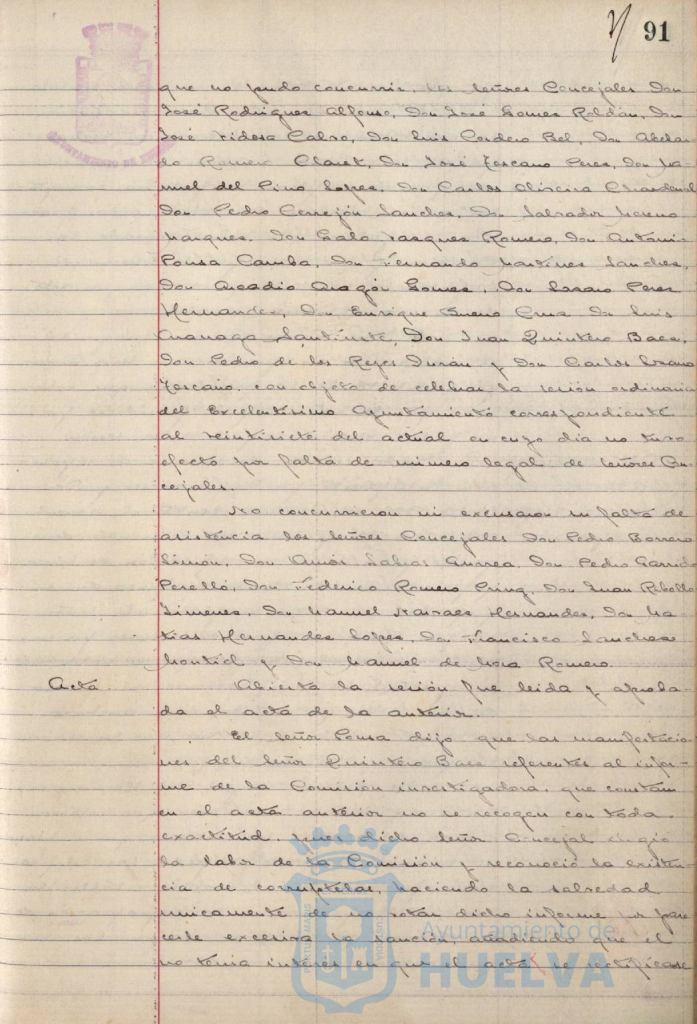 91
que no pudo concurrir, los señores Concejales Don
José Rodriguez Alfonso, Don José Gomez Roldán, Don
José Tidosa Calvo, Don Luis Cordero Bel, Don Abelar
do Romero Claret, Don José Toscano Perez, Don Ma-
nuel del Pino Lopez, Don Carlos Oliveira Chardenal
Don Pedro Cerrejón Sanchez, Don Salvador Moreno
Marquez, Don Galo Vazquez Romero, Don Antonio
Ponsa Camba, Don Fernando Martinez Sanchez,
Don Arcadio Aragón Gomez, Don Perez
Hernandez, Don Enrique Bueno Cruz Don Luis
Don Juan Quintero Baez,
Don Pedro de los Reyes Durán y Don Carlos
Toscano, con objeto de celebrar la sesión ordinaria
del Excelentisimo Ayuntamiento correspondiente
al veintisiete del actual en cuyo dia no tuvo
efecto por falta de número legal de señores Con-
cejales.
No concurrieron ni excusaron su falta de
asistencia los señores Concejales Don Pedro Borrero
Limón, Don Amós Sabras Gurrea, Don Pedro Garrido
Perelló, Don Federico Romero Don Juan Rebollo
Jimenez, Don Manuel Narvaez Hernandez, Don Ma-
tias Hernandez Lopez, Don Francisco Sanchez
Montiel y Don Manuel de Mora Romero.
Acta.
Abierta la sesión fue leida y aproba-
da el acta de la anterior.
El señor Ponsa dijo que las manifestacio-
nes del señor Quintero Baez referentes al infor-
me de la Comisión investigadora, que constan
en el acta anterior no se recogen con toda
exactitud, pues dicho señor Concejal elogió
la labor de la Comisión y reconoció la existen-
cia de corruptelas, haciendo la salvedad
unicamente de no votar dicho informe por pare
cerle excesiva la sanción, añadiendo que él
no tenia interés en que el acta se rectificase
AYUNTAMIENTO DE HUELVA
Ayuntamiento de
HUELVA